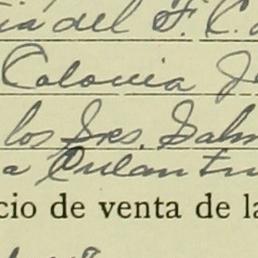 ia del F. C.
Colonia J
los Sres. Salm
a
cio de venta de la